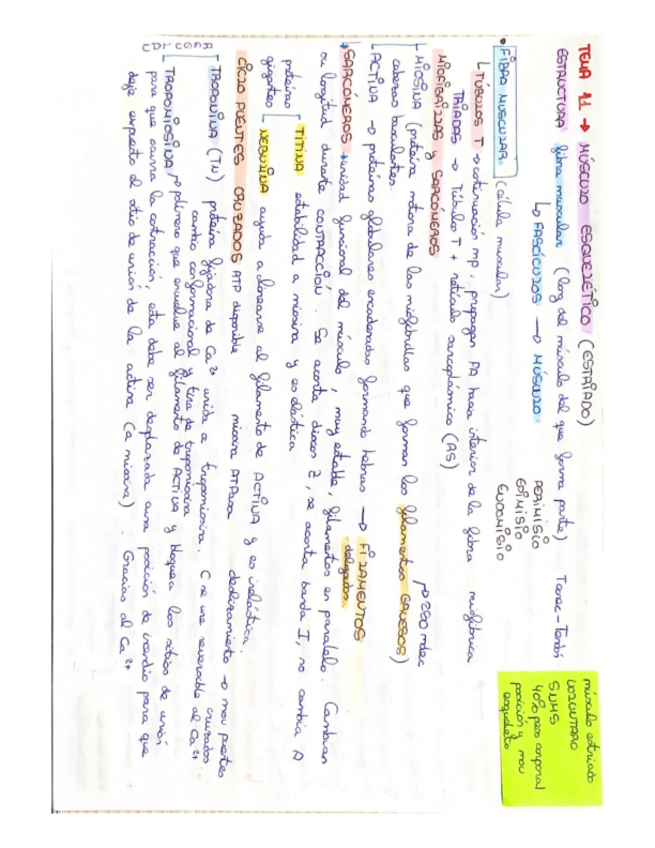 TEMA 11 → MÚSCULO ESQUELÉTICO (ESTRIADO)
ESTRUCTURA fibra muscular (long del músculo del que forma parte) Tronc-Tendó
↳ FASCÍCULOS → MÚSCULO
PERIMISIO
EPIMISIO
ENDOMISIO
músculo estriado
VOLUNTARIO
SNMS
40% peso corporal
posición y mov
esqueleto
• FIBRA MUSCULAR (célula muscular)
↳ TÚBULOS T → continuación mp, propagan PA hacia interior de la fibra
TRIADAS → Túbulo T + retículo sarcoplásmico (RS)
MIOFIBRILLAS y SARCÓMEROS
MIOSINA (proteína motora de las miofibrillas que forman los filamentos GRUESOS)
→ 250 molec
cabezas basculantes.
ACTINA → proteínas globulares encadenadas formando hebras → FILAMENTOS
delgados.
SARCÓMEROS → unidad funcional del músculo, muy estable, filamentos en paralelo. Cambian
su longitud durante CONTRACCIÓN. Se acorta discos Z, se acorta banda I, no cambia A
proteínas gigantes
TITINA estabilidad a miosina y es elástica
NEBULINA ayuda a alinearse al filamento de ACTINA y es inelástica.
CICLO PUENTES CRUZADOS ATP disponible miosina ATPasa deslizamiento → mov puentes
cruzados.
TROPONINA (TN) proteína fijadora de Ca²⁺ unida a tropomiosina. C se une reversible al Ca²⁺
cambio conformacional y tira de tropomiosina
TROPOMIOSINA → polímero que envuelve al filamento de ACTINA y bloquea los sitios de unió
para que ocurra la contracción, esta debe ser desplazada a una posición de incendio para que
deje expuesto el sitio de unión de la actina (a miosina). Gracias al Ca²⁺